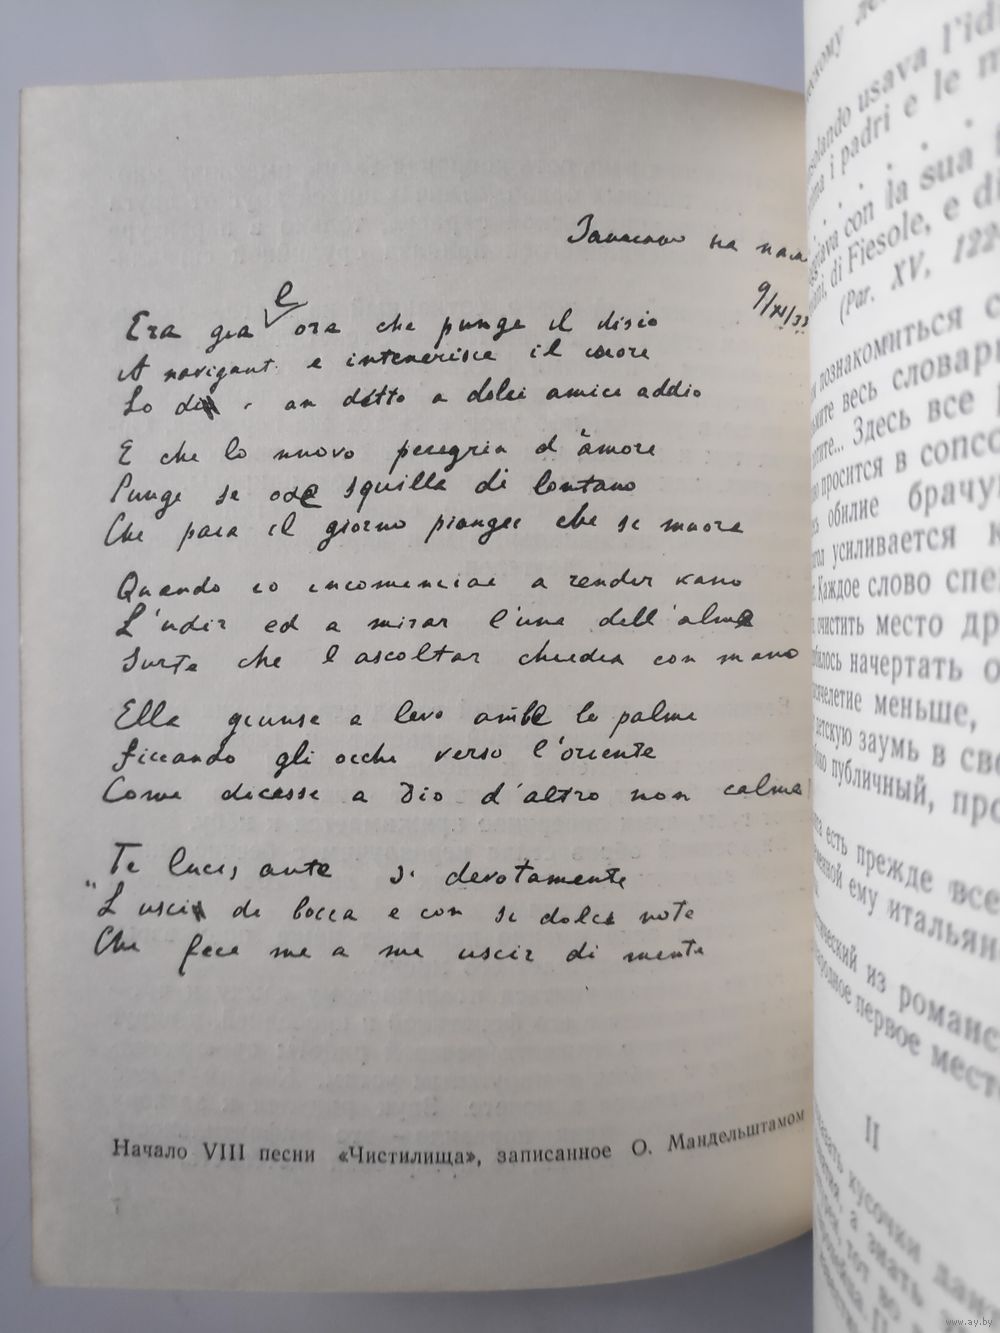 Записано на пам
9/XI/33
е
Era gia ora che punge il disio
A navigant e intenerisce il cuore
Lo di an detto a dolci amici addio
E che lo nuovo peregrin d'amore
Punge se ode squilla di lontano
Che para il giorno pianger che si muore
Quando io incominciai a render vano
L'udir ed a mirar l'una dell'alme
Surta che l ascoltar chiedea con mano
Ella giunse a levo ambe le palme
Ficcando gli occhi verso l'oriente
Come dicesse a Dio d'altro non calme
Te lucis ante si devotamente
"L usci di bocca e con si dolci note
Che fece me a me uscir di mente
Начало VIII песни «Чистилища», записанное О. Мандельштамом
скому
usava l'id
i padri e le m
con la sua
di Fiesole, e di
(Par. XV, 122
познакомиться с
весь словар
Здесь все
просится в
обилие брачу
усиливается к
Каждое слово спе
очистить место др
начертать о
меньше,
детскую заумь в св
публичный, про
есть прежде все
ему итальян
из романс
первое мест
II
кусочки
а знать
www.ay.by